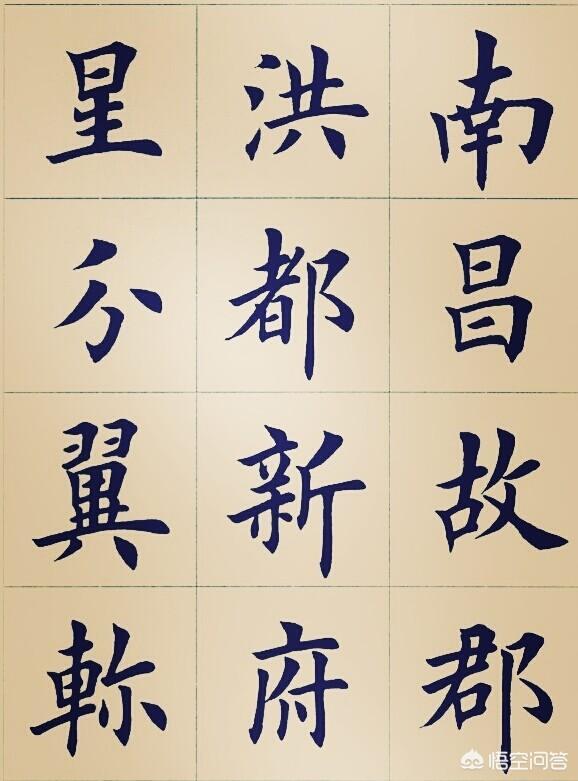 南昌故郡
洪都新府
星分翼軫
悟空问答